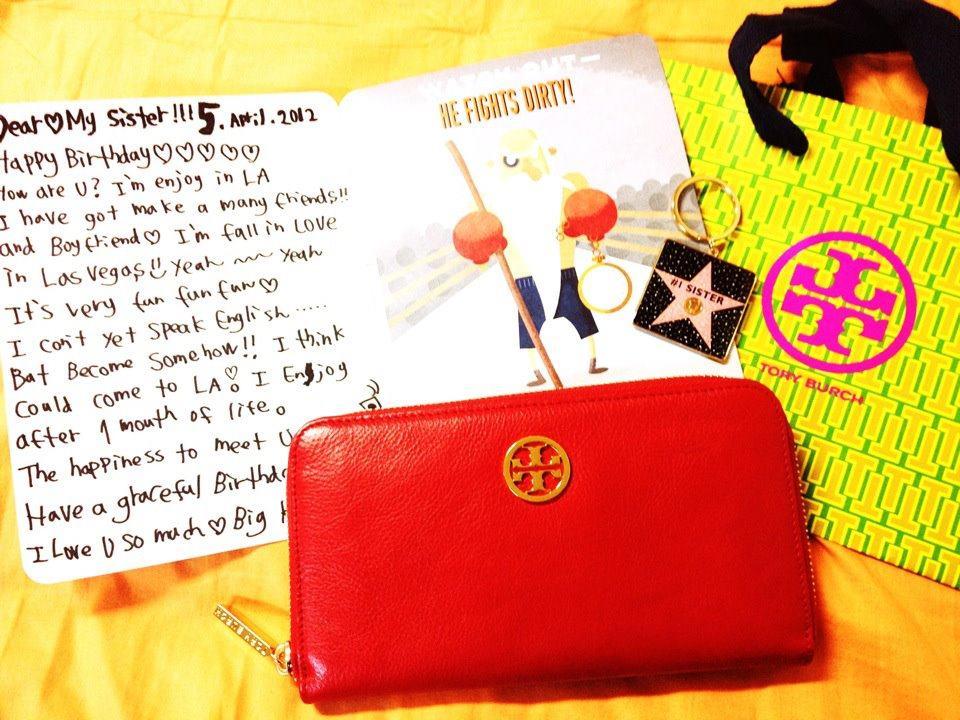 Dear♡My Sister!!! 5. April. 2012
Happy Birthday♡♡♡♡♡
How are U? I'm enjoy in LA
I have got make a many friends!!
and Boyfriend♡ I'm fall in Love
in Las Vegas!! yeah ~~ yeah
It's very fun fun fun♡
I can't yet speak English.....
Bat Become Somehow!! I think
Could come to LA! I Enjoy
after 1 mouth of life.
The happiness to meet U
Have a graceful Birthda
I Love U so much♡ Big
WATCH OUT—
HE FIGHTS DIRTY!
#1 SISTER
TORY BURCH